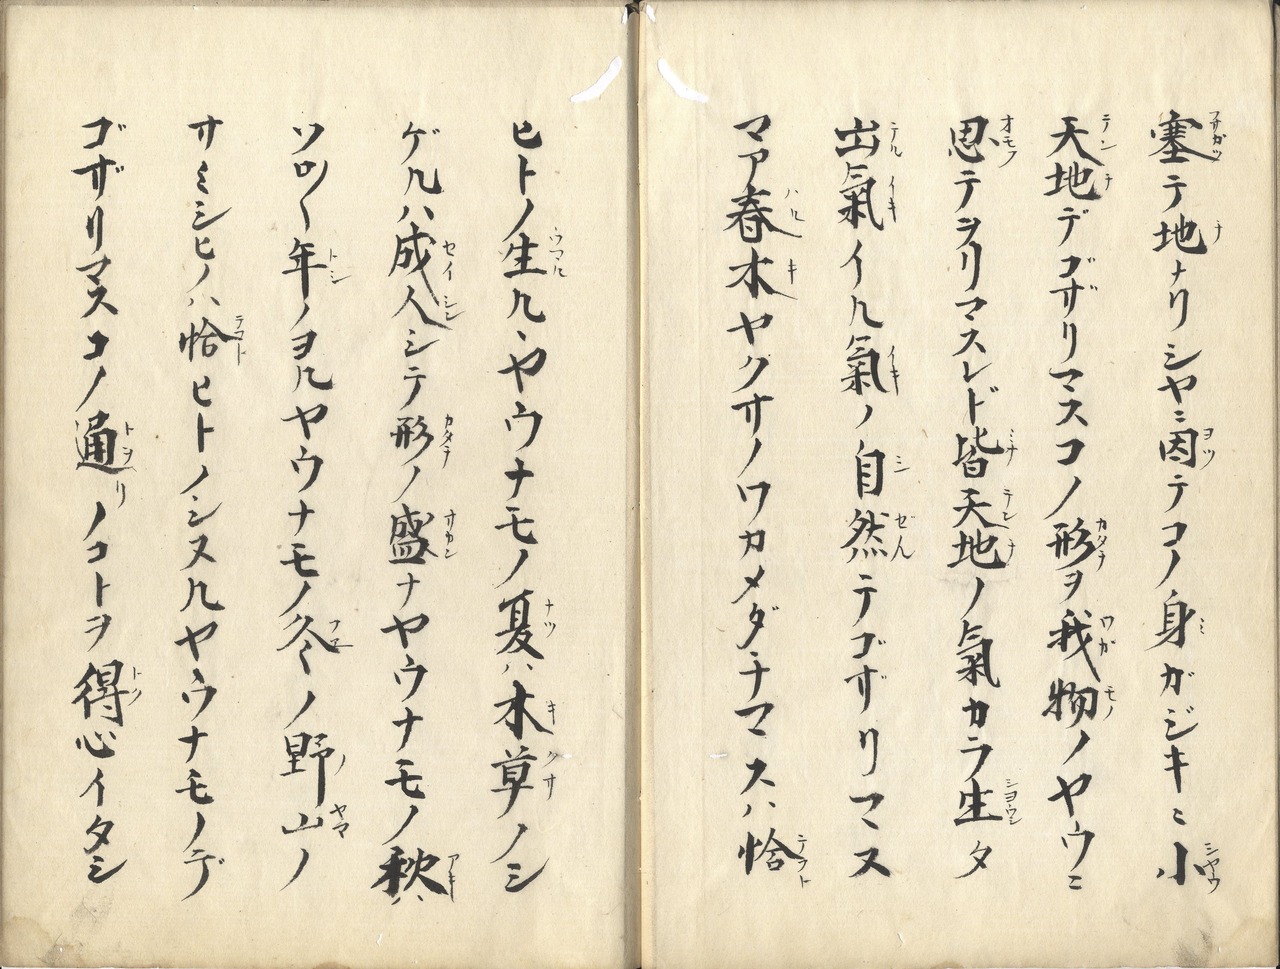 塞テ地ナリシヤニ因テコノ身ガジキニ小
天地デゴザリマスコノ形ヲ我物ノヤウニ
思テヲリマスレド皆天地ノ氣カラ生タ
出氣イル氣ノ自然テゴザリマス
マア春木ヤクサノワカメダチマスハ恰
ヒトノ生ルヽヤウナモノ夏ハ木草ノシ
ゲルハ成人シテ形ノ盛ナヤウナモノ秋ハ
ソロ〳〵年ノヨルヤウナモノ冬ノ野山ノ
サミシヒノハ恰ヒトノシヌルヤウナモノデ
ゴザリマスコノ通リノコトヲ得心イタシ